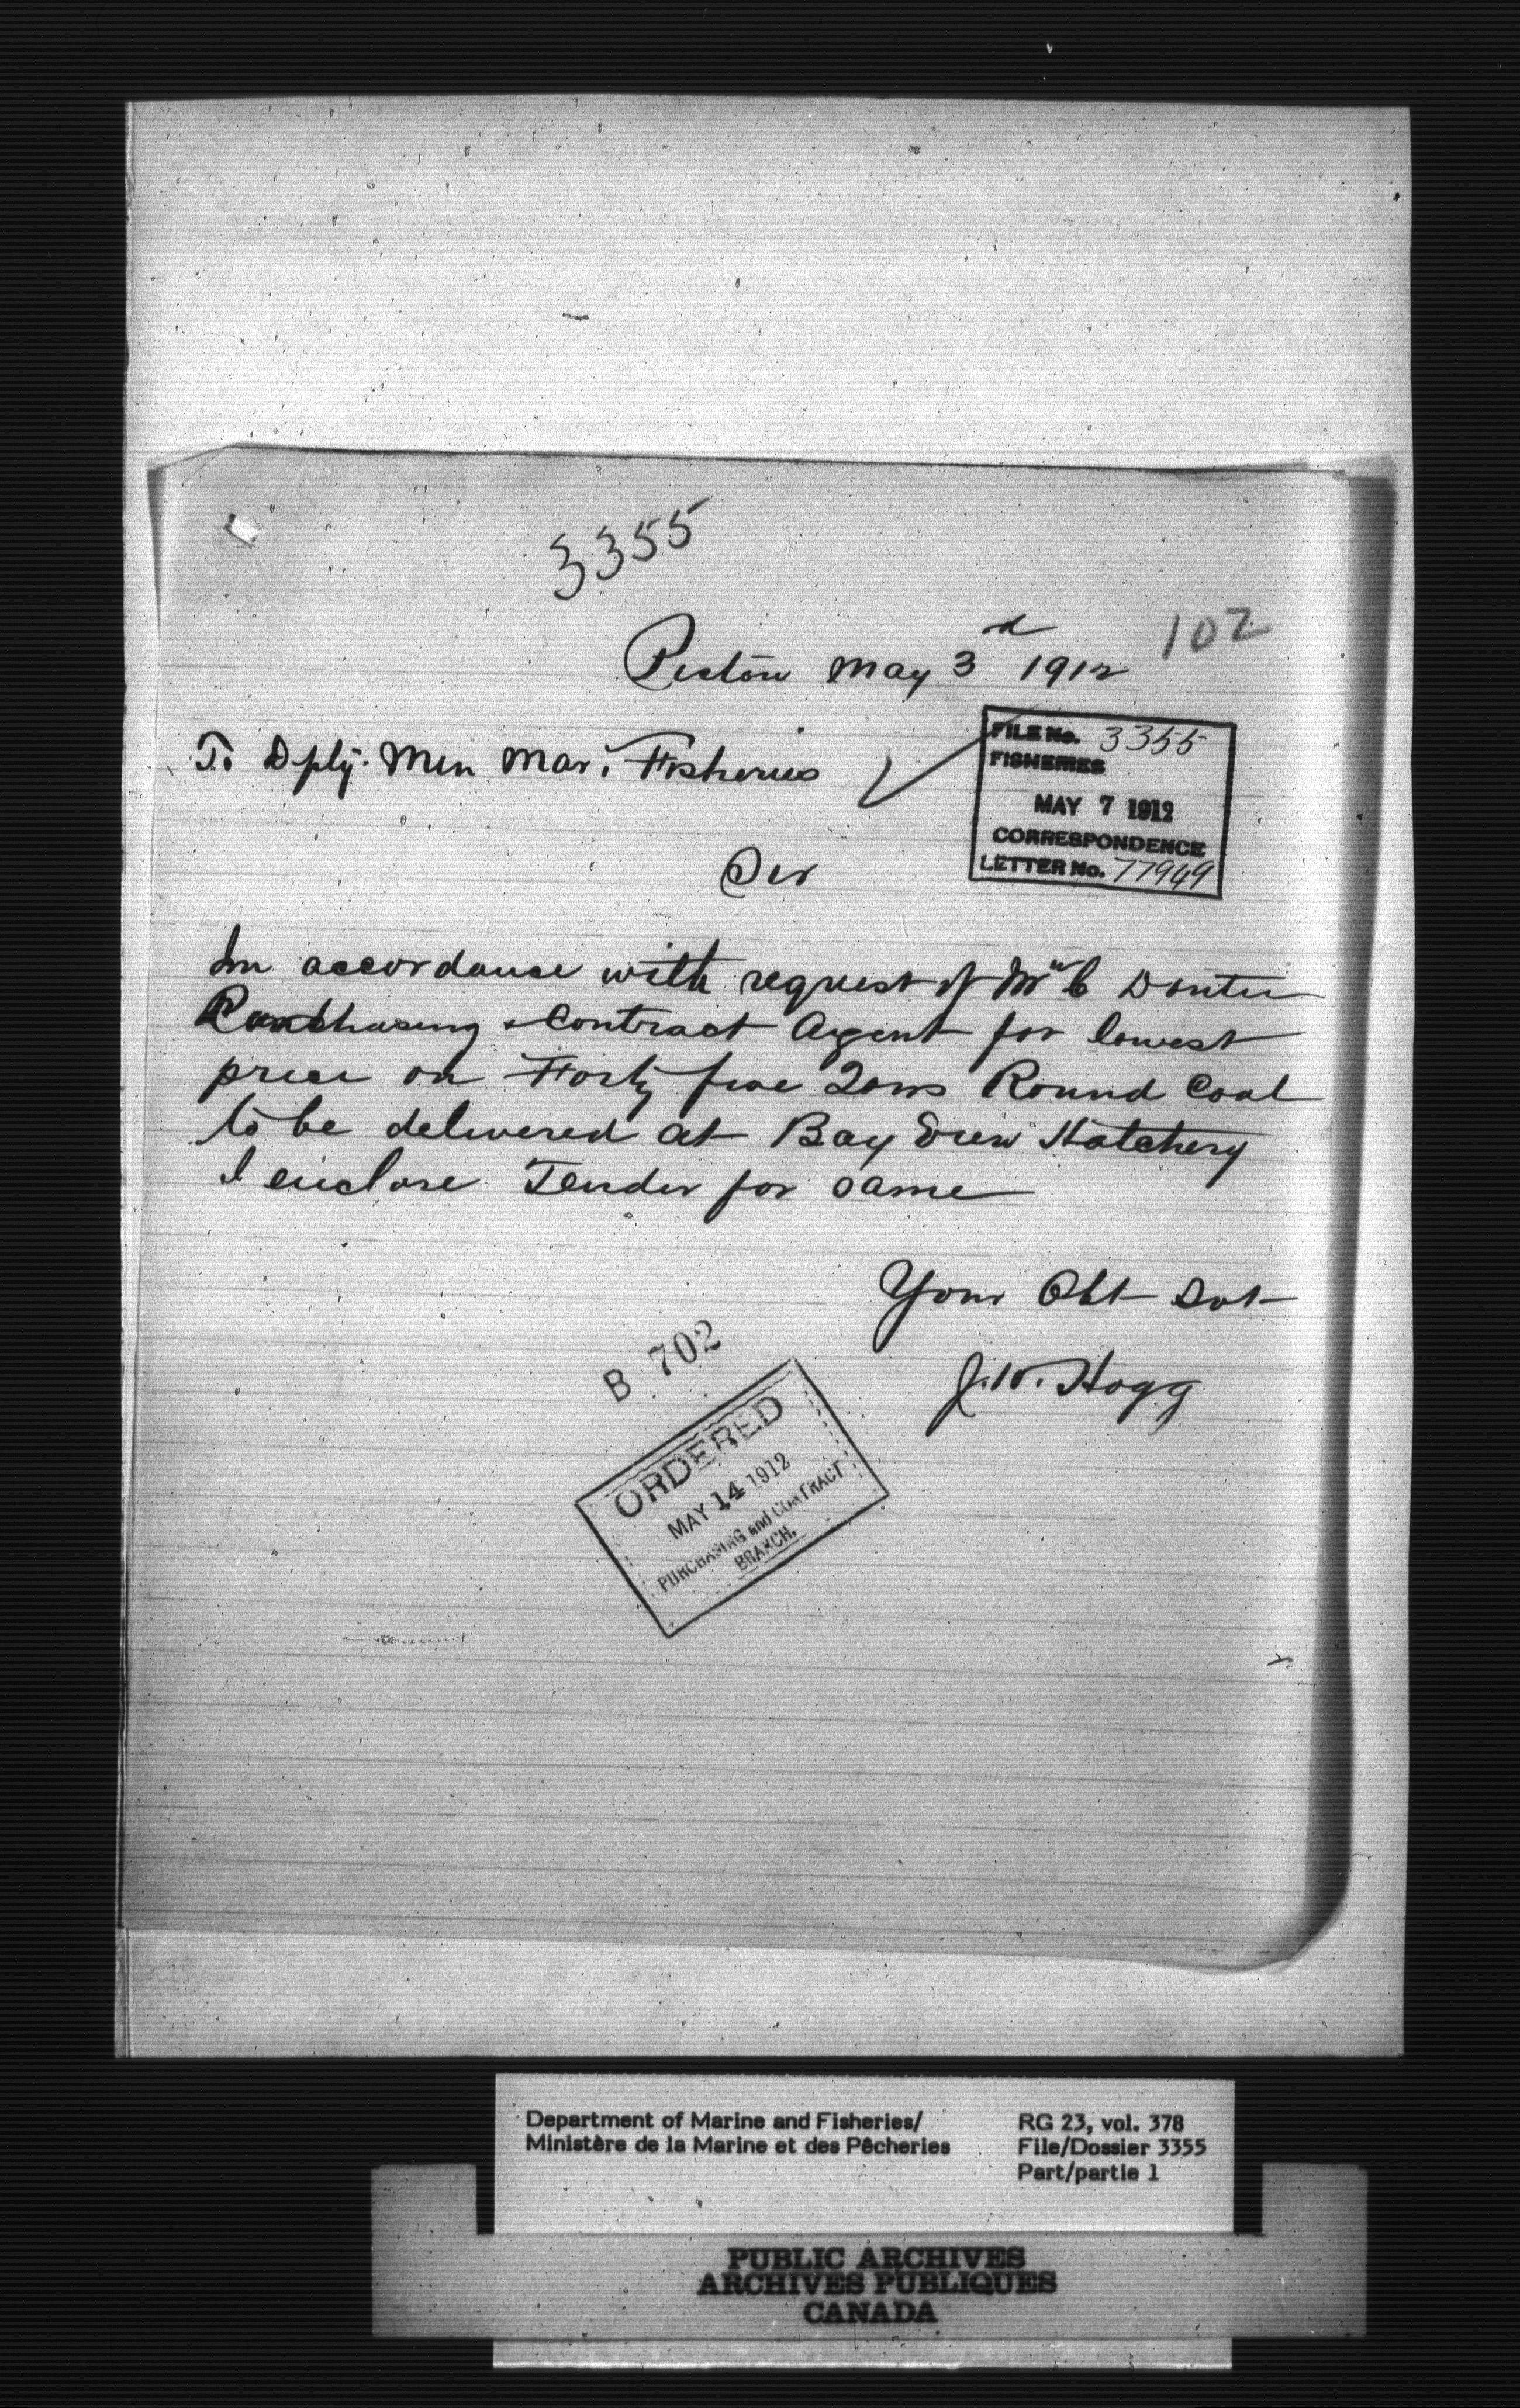 3355
102
Pictou May 3rd 1912
To Dpty. Min Mar. Fisheries
FILE No. 3355
FISHERIES
MAY 7 1912
CORRESPONDENCE
LETTER No. 77949
Sir
In accordance with request of Mr C
Purchasing & Contract Agent for lowest
price on Forty five Tons Round Coal
to be delivered at Bay View Hatchery
I enclose Tender for same
Your Obt Svt
J.W. Hogg
B 702
ORDERED
MAY 14 1912
PURCHASING and CONTRACT
BRANCH.
Department of Marine and Fisheries/
Ministère de la Marine et des Pêcheries
RG 23, vol. 378
File/Dossier 3355
Part/partie 1
PUBLIC ARCHIVES
ARCHIVES PUBLIQUES
CANADA